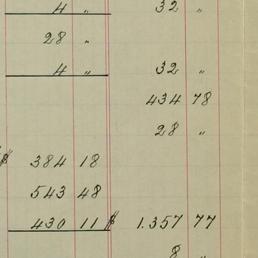 4 " 32 "
28 "
4 " 32 "
434 78
28 "
$ 384 18
543 48
430 11 $ 1.357 77
8 "